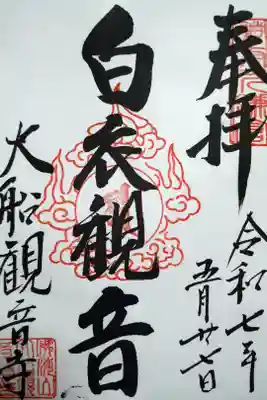 奉拝
令和七年
五月廿七日
白衣観音
大船観音寺